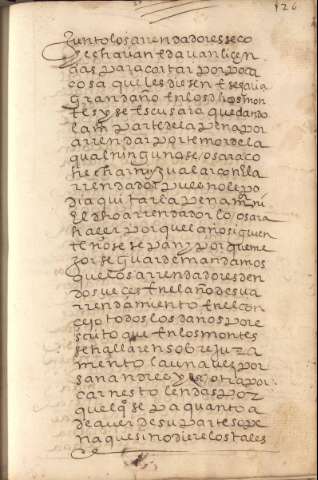 126
Junto los arrendadores se co
hechavan E davan licen
çias para cortar por poca
cosa que les diesen E se haçia
gran daño En los dhos mon
tes y se Escusara quedando
la mi parte de la pena por
arrendar por temor de la
qual ninguno se osara co
hechar ny ygualar con El a
rrendador pues no le po
dia quitar la pena mi ni
El dho arrendador lo osara
haçer por que El año siguien
te no se sepa y por que me
jor se guarde mandamos
que los arrendadores den
dos veçes En El año de su a
rrendamiento En El con
cejo todos los daños por e
scrito que En los montes
se hallaren so bre jura
mento la una vez por
san andres y la otra por
carnestolendas por
que El qº sepa quanto a
de aver de su parte so pe
na que si no diere los tales